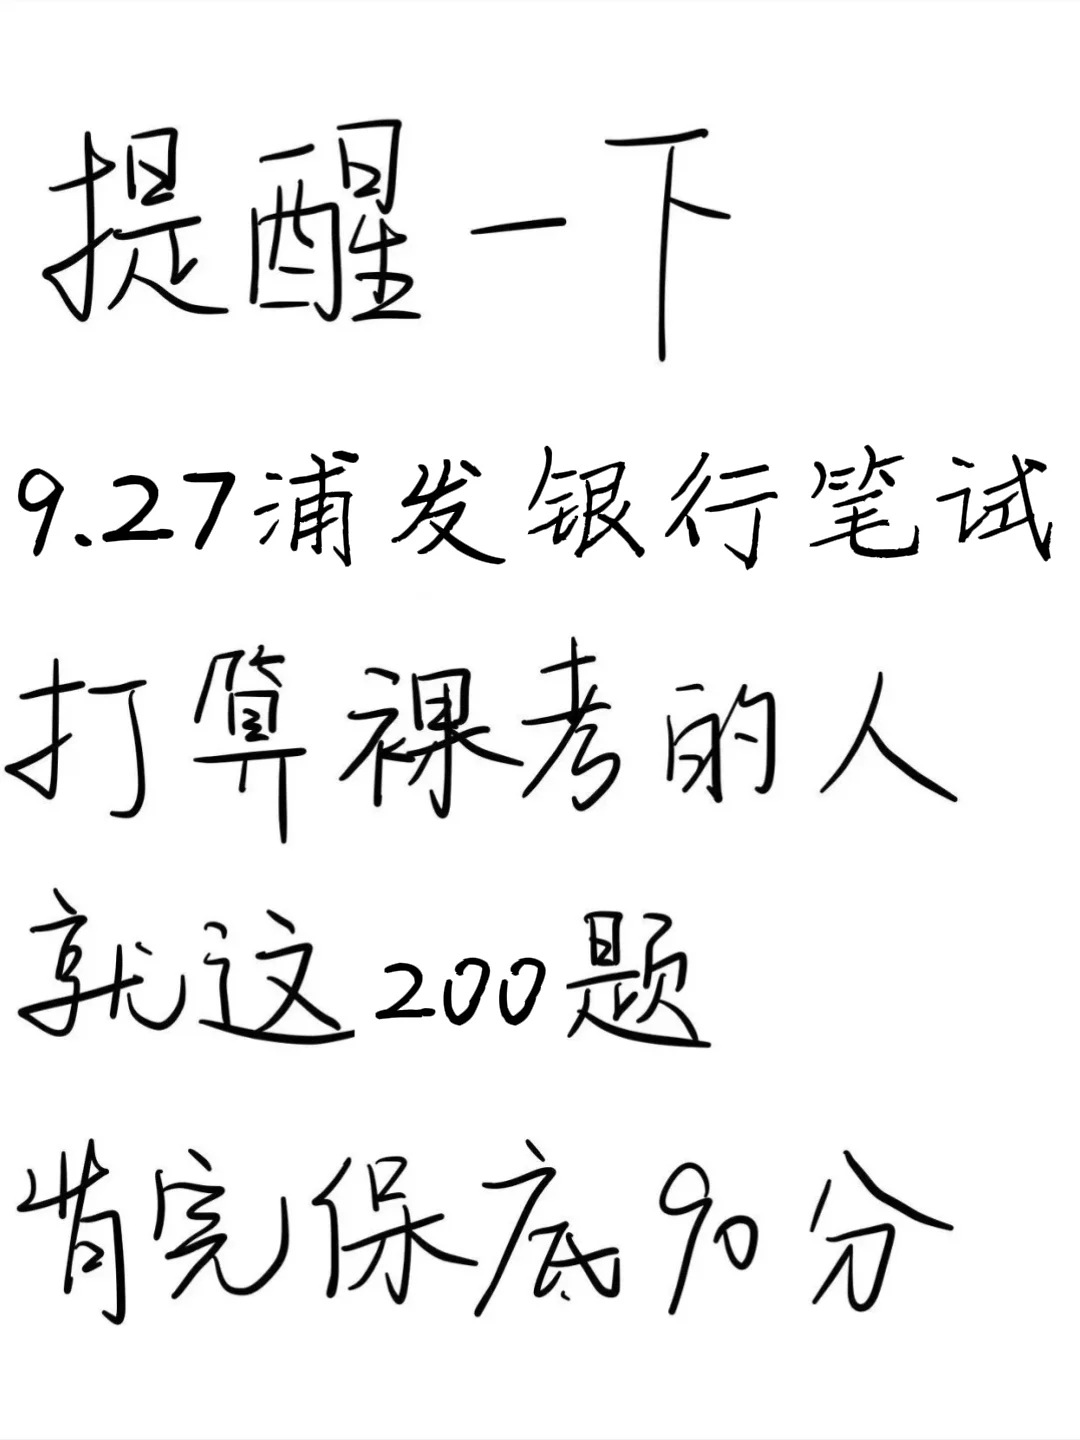 提醒一下
9.27浦发银行笔试
打算裸考的人
就这200题
背完保底90分